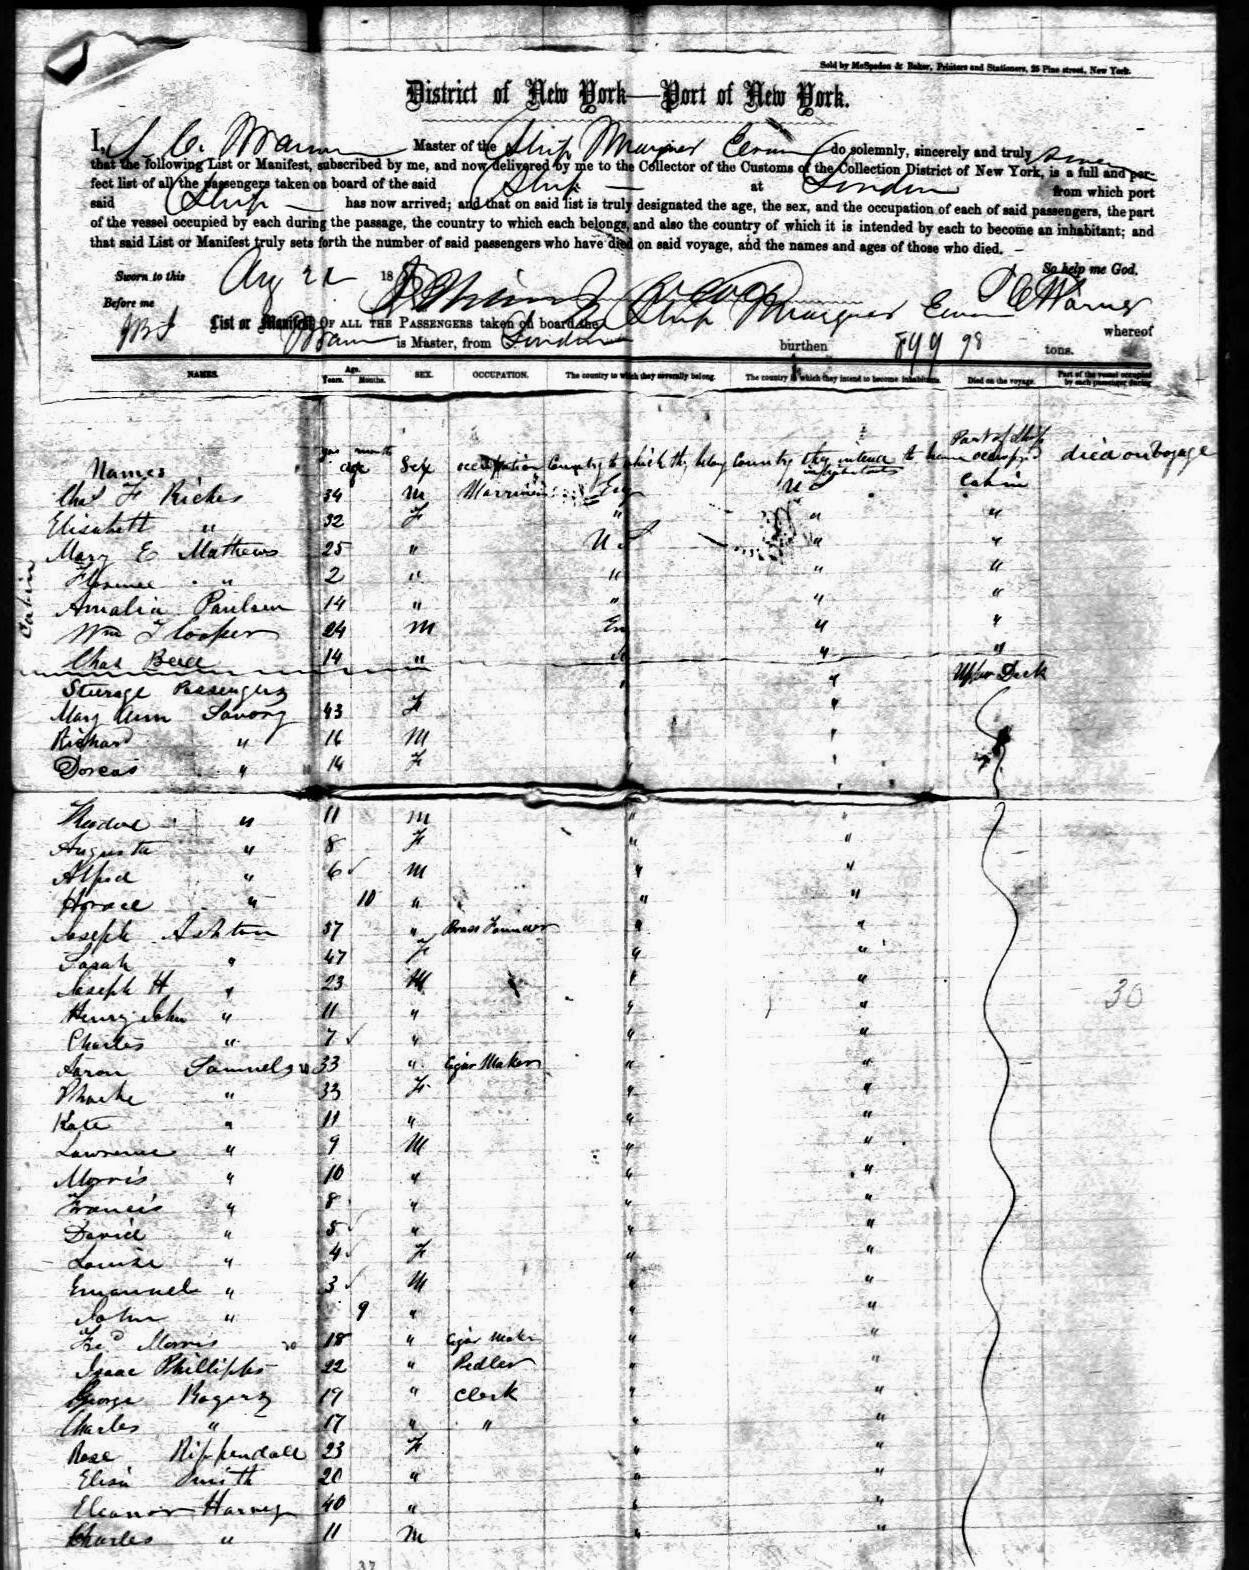 Sold by McSpedon & Baker, Printers and Stationers, 25 Pine street, New York.
District of New York—Port of New York.
I, Master of the Ship do solemnly, sincerely and truly
that the following List or Manifest, subscribed by me, and now delivered by me to the Collector of the Customs of the Collection District of New York, is a full and per-
fect list of all the passengers taken on board of the said Ship at London from which port
said Ship has now arrived; and that on said list is truly designated the age, the sex, and the occupation of each of said passengers, the part
of the vessel occupied by each during the passage, the country to which each belongs, and also the country of which it is intended by each to become an inhabitant; and
that said List or Manifest truly sets forth the number of said passengers who have died on said voyage, and the names and ages of those who died.
Sworn to this Aug 22 18 So help me God.
Before me
List or Manifest OF ALL THE PASSENGERS taken on board the Ship whereof
is Master, from London burthen 899 98 tons.
NAMES. Age. Years. Months. SEX. OCCUPATION. The country to which they severally belong. The country in which they intend to become inhabitants. Died on the voyage. Part of the vessel occupied by each passenger during
Names age Sex occupation Country to which they belong Country they intend to become inhabitants Part of Ship occupied died on Voyage
Chas F Riches 34 M Eng U S Cabin
Elisabeth " 32 F " " "
Mary E Mathews 25 " U S " "
Florence " 2 " " " "
Amalia Paulsen 14 " " " "
Wm T Cooper 24 M En " "
Chas 14 " " " "
Cabin
Steerage Passengers " " Upper Deck
Mary Ann Savory 43 F "
Richard " 16 M "
Dorcas " 14 F " "
" 11 M " "
Augusta " 8 F " "
Alfred " 6 M " "
Horace " 10 " " "
Joseph Ashton 37 " Brass Founder " "
Sarah " 47 F " "
Joseph H " 23 M " "
Henry John " 11 " " "
30
Charles " 7 " " "
Aaron Samuels 33 " Cigar Maker " "
Phoebe " 33 F " "
Kate " 11 " " "
Lawrence " 9 M " "
Morris " 10 " " "
Francis " 8 " " "
David " 5 " " "
Louisa " 4 F " "
Emanuel " 3 M " "
John " 9 " " "
Fred Morris 18 " Cigar Maker " "
Isaac Phillipps 22 " Pedler " "
George Rogers 19 " Clerk " "
Charles " 17 " " " "
Rose Rippendale 23 F " "
Elisa Smith 20 " " "
Eleanor Harvey 40 " " "
Charles " 11 M " "